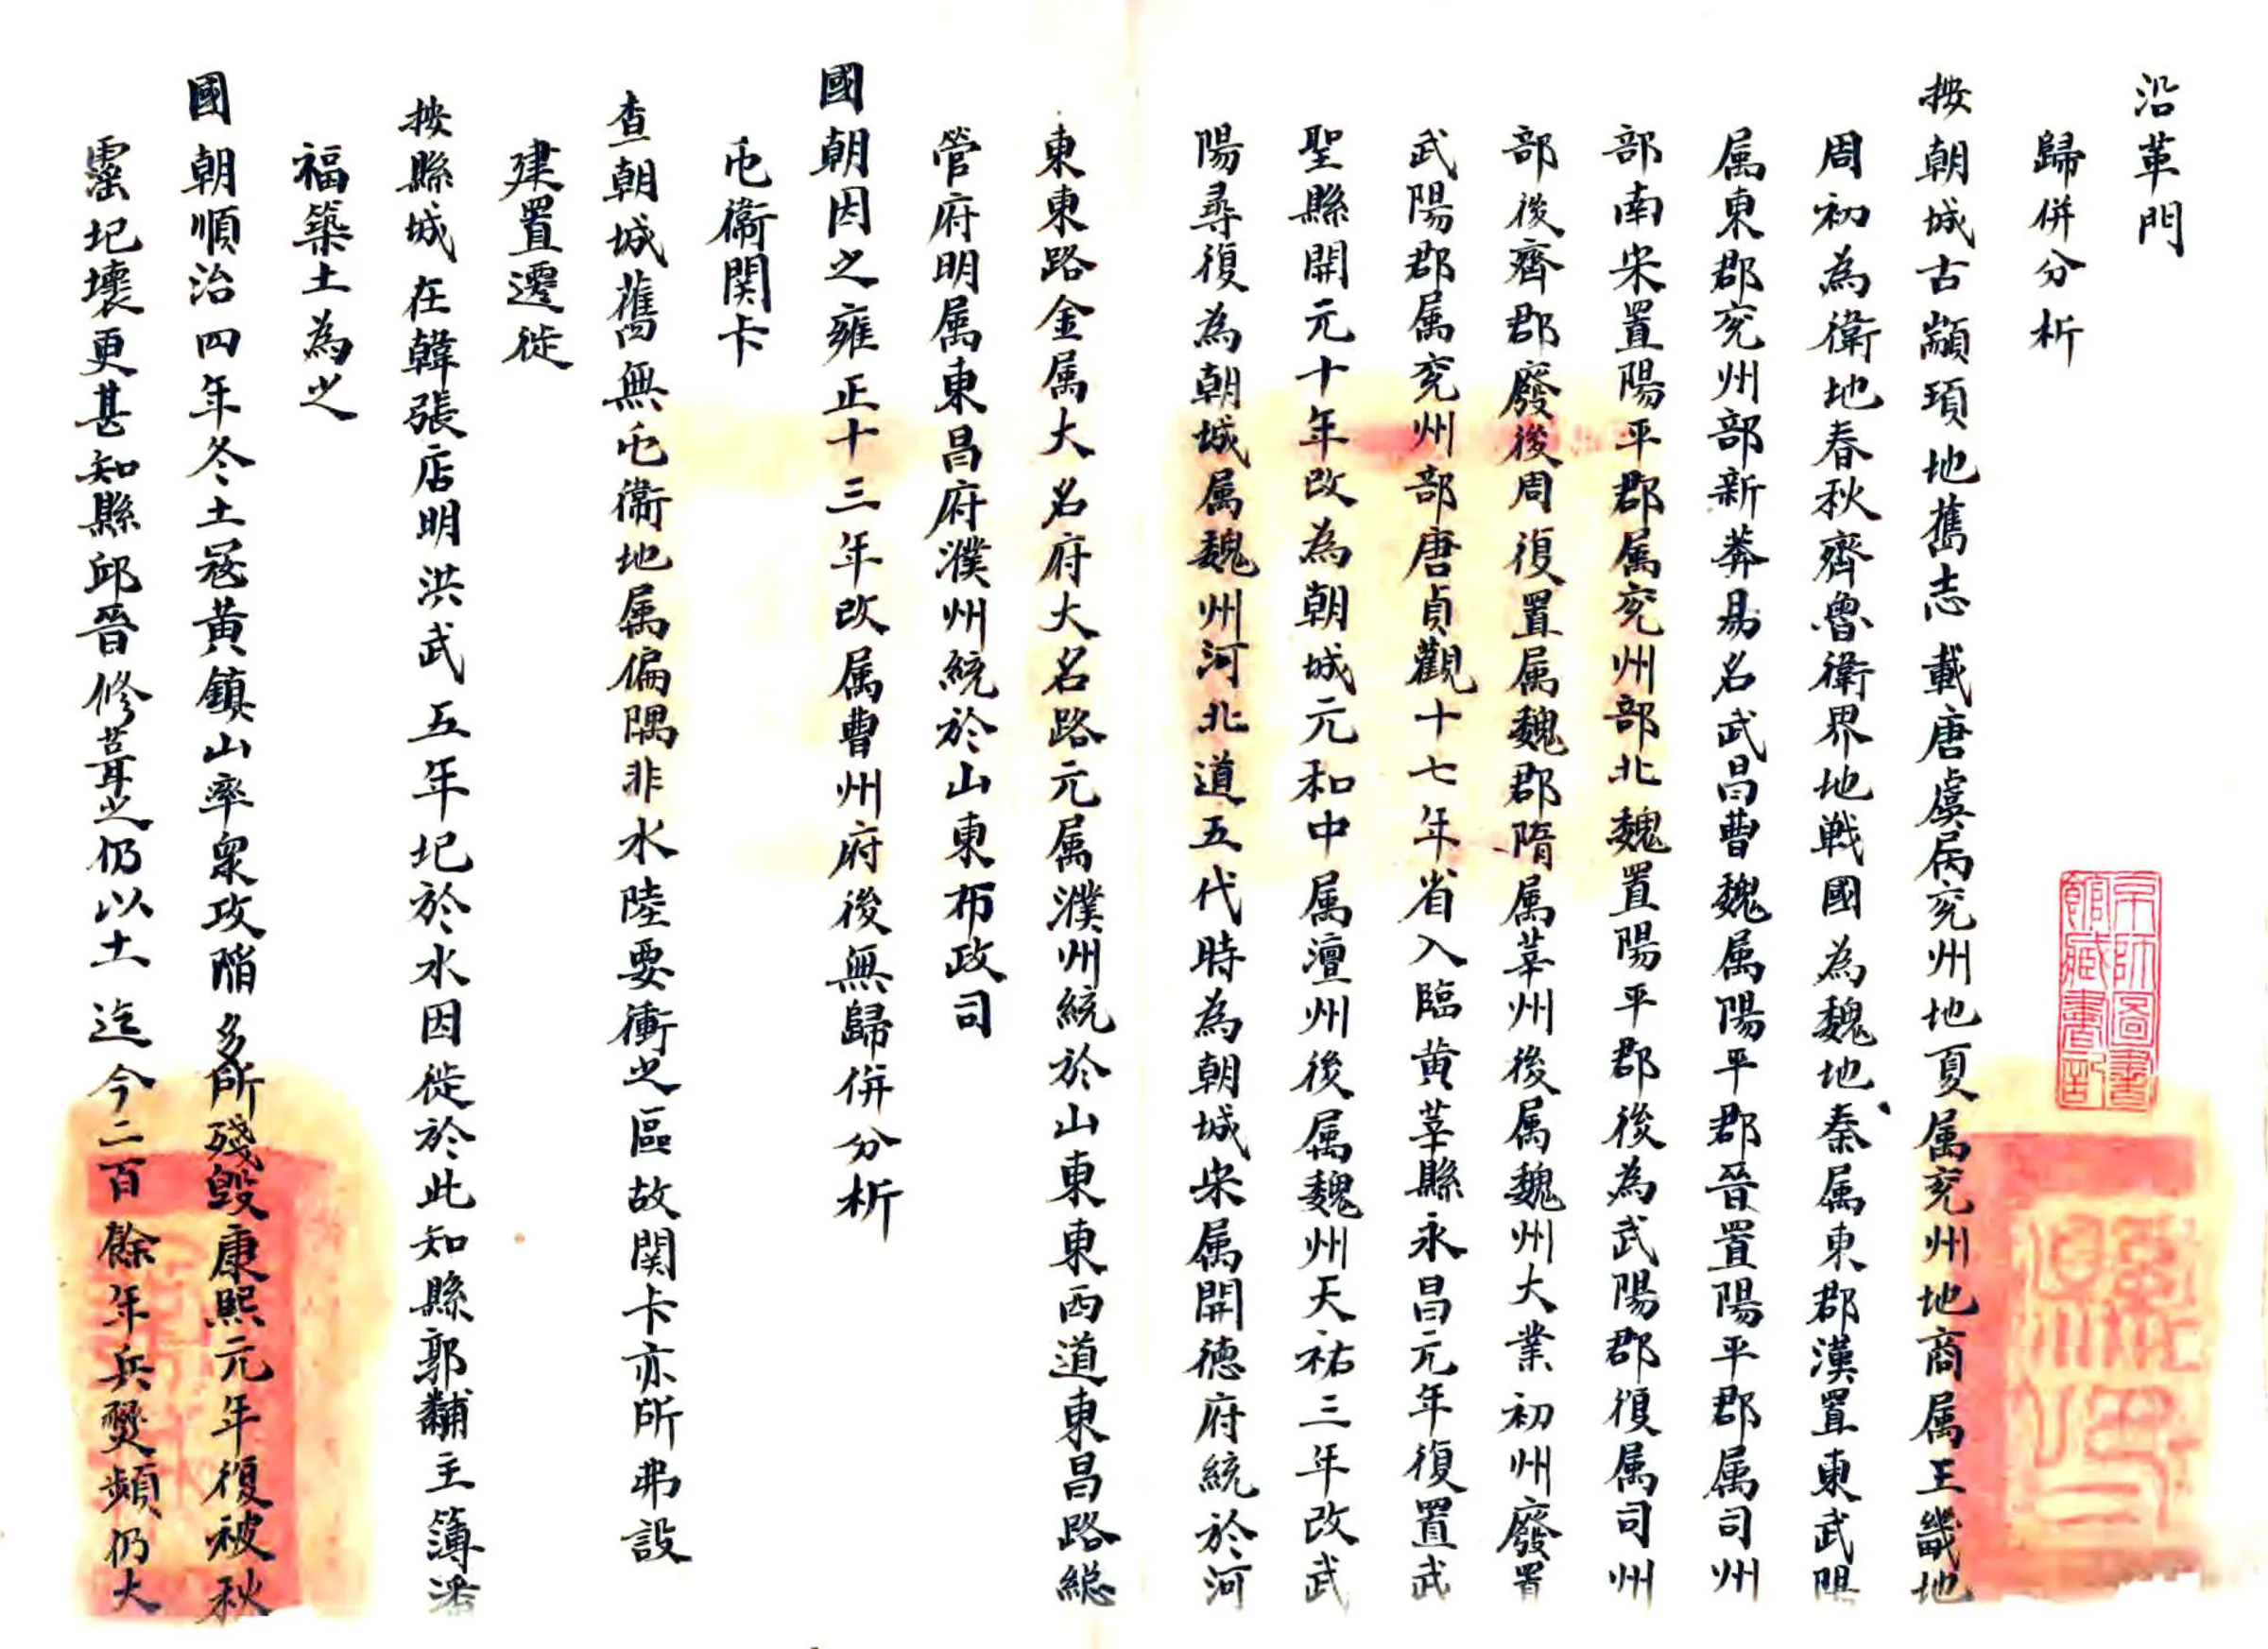 沿革門
歸併分析
按朝城古顓頊地舊志載唐虞属兖州地夏属兖州地商属王畿地
周初為衛地春秋齊魯衛界地戦國為魏地秦属東郡漢置東武陽
属東郡兖州部新莽易名武昌曹魏属陽平郡晉置陽平郡属司州
部南宋置陽平郡属兖州部北魏置陽平郡後為武陽郡復属司州
部後齊郡廢後周復置属魏郡隋属莘州後属魏州大業初州廢置
武陽郡属兖州部唐貞觀十七年省入臨黄莘縣永昌元年復置武
聖縣開元十年改為朝城元和中属澶州後属魏州天祐三年改武
陽尋復為朝城属魏州河北道五代時為朝城宋属開德府統於河
東東路金属大名府大名路元属濮州統於山東東西道東昌路総
管府明属東昌府濮州統於山東布政司
國朝因之雍正十三年改属曹州府後無歸併分析
屯衞関卡
查朝城舊無屯衞地属偏隅非水陸要衝之區故関卡亦所弗設
建置遷徙
按縣城在韓張店明洪武五年圮於水因徙於此知縣郭黼主簿潘
福築土為之
國朝順治四年冬土寇黄鎮山率衆攻陷多所殘毀康熙元年復被秋
霪圮壞更甚知縣邱晉修葺之仍以土迄今二百餘年兵燹頻仍大
京師圖書
館藏書記
縣印